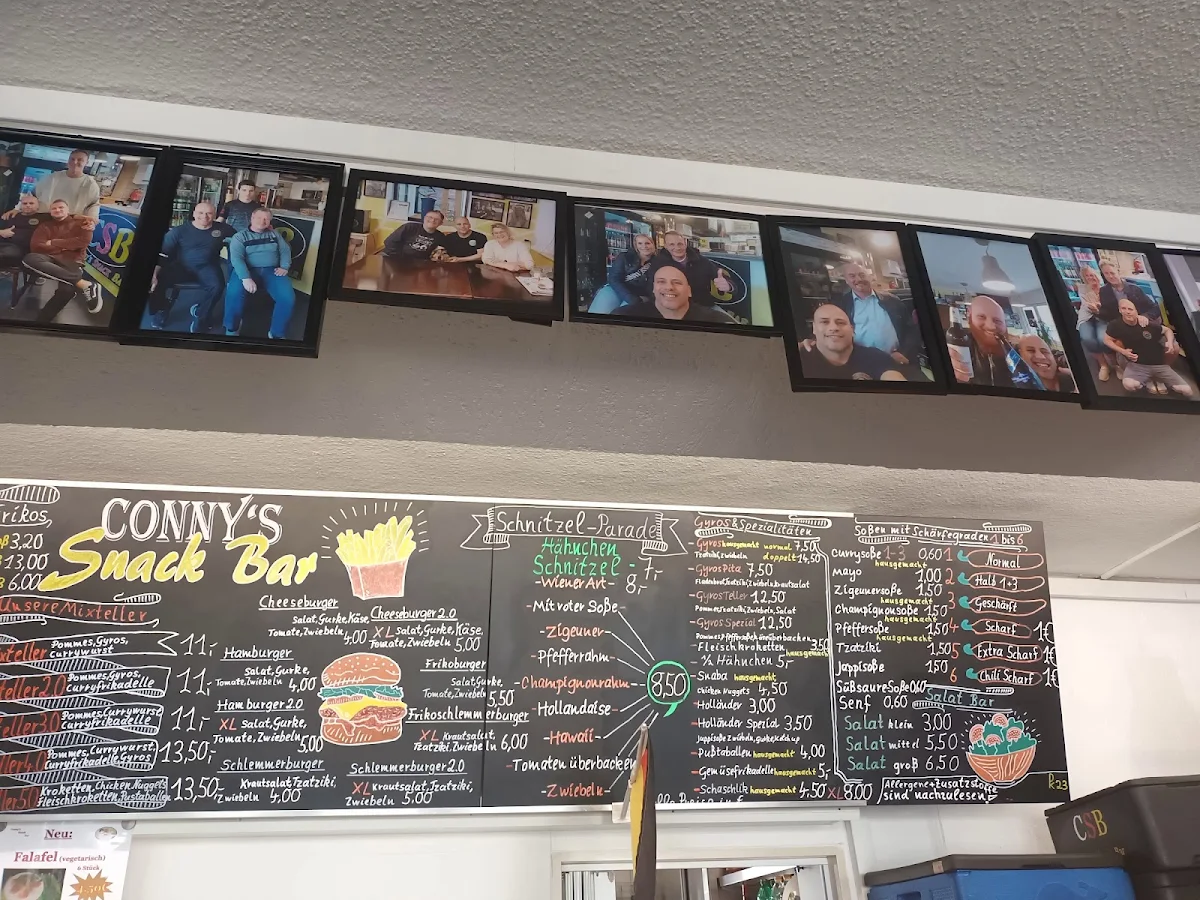 CSB
SNACK BAR
rikos
3,20
13,00
6,00
CONNY'S
Snack Bar
Unsere Mixteller
Pommes, Gyros,
currywurst
11,-
teller 2.0
Pommes, Gyros,
Curryfrikadelle
11,-
teller 3.0
Pommes, Currywurst,
Curryfrikadelle
11,-
teller 4.0
Pommes, Currywurst,
Curryfrikadelle, Gyros
13,50,-
teller 5.0
Kroketten, Chicken Nuggets
Fleischkroketten, Pustaballen
13,50-
Cheeseburger
Salat, Gurke, Käse,
Tomate, Zwiebeln 4,00
Hamburger
Salat, Gurke,
Tomate, Zwiebeln 4,00
Hamburger 2.0
XL Salat, Gurke,
Tomate, Zwiebeln 5,00
Schlemmerburger
Krautsalat, Tzatziki,
Zwiebeln 4,00
Cheeseburger 2.0
XL Salat, Gurke, Käse,
Tomate, Zwiebeln 5,00
Frikoburger
Salat, Gurke
Tomate, Zwiebeln 5,50
Frikoschlemmerburger
XL Krautsalat
Tzatziki, Zwiebeln 6,00
Schlemmerburger 2.0
XL Krautsalat, Tzatziki,
Zwiebeln 5,00
Schnitzel-Parade
Hähnchen
Schnitzel - 7,-
- Wiener Art - 8,-
- Mit roter Soße -
- Zigeuner -
- Pfefferrahm -
- Champignonrahm -
- Hollandaise -
- Hawaii -
- Tomaten überbacken
- Zwiebeln -
8,50
Gyros & Spezialitäten
- Gyros hausgemacht normal 7,50
Tzatziki, Zwiebeln doppelt 14,50
- Gyros Pita 7,50
Fladenbrot, Tzatziki, Zwiebeln, Krautsalat
- Gyros Teller 12,50
Pommes, Tzatziki, Zwiebeln, Salat
- Gyros Spezial 12,50
Pommes, Pfefferrahm überbacken
- Fleischkroketten hausgemacht 3,50
- ½ Hähnchen 5,-
- Snaba hausgemacht
Chicken Nuggets 4,50
- Holländer 3,00
- Holländer Spezial 3,50
- Pußtaballen hausgemacht 4,00
- Gemüsefrikadelle hausgemacht 5,-
- Schaschlik hausgemacht 4,50 XL 8,00
Soßen mit Schärfegraden 1 bis 6
Currysoße 1-3 0,60
hausgemacht
Mayo 1,00
Zigeunersoße 1,50
hausgemacht
Champignonsoße 1,50
Pfeffersoße 1,50
hausgemacht
Tzatziki 1,50
Joppisoße 1,50
Süßsauresoße 0,60
Senf 0,60
1 Normal
2 Halb 1+3
3 Geschärft
4 Scharf 1€
5 Extra Scharf 1€
6 Chili Scharf 1€
Salat Bar
Salat klein 3,00
Salat mittel 5,50
Salat groß 6,50
Allergene + Zusatzstoffe
sind nachzulesen
R23
Neu:
Falafel (vegetarisch)
6 Stück
4,50€
CSB